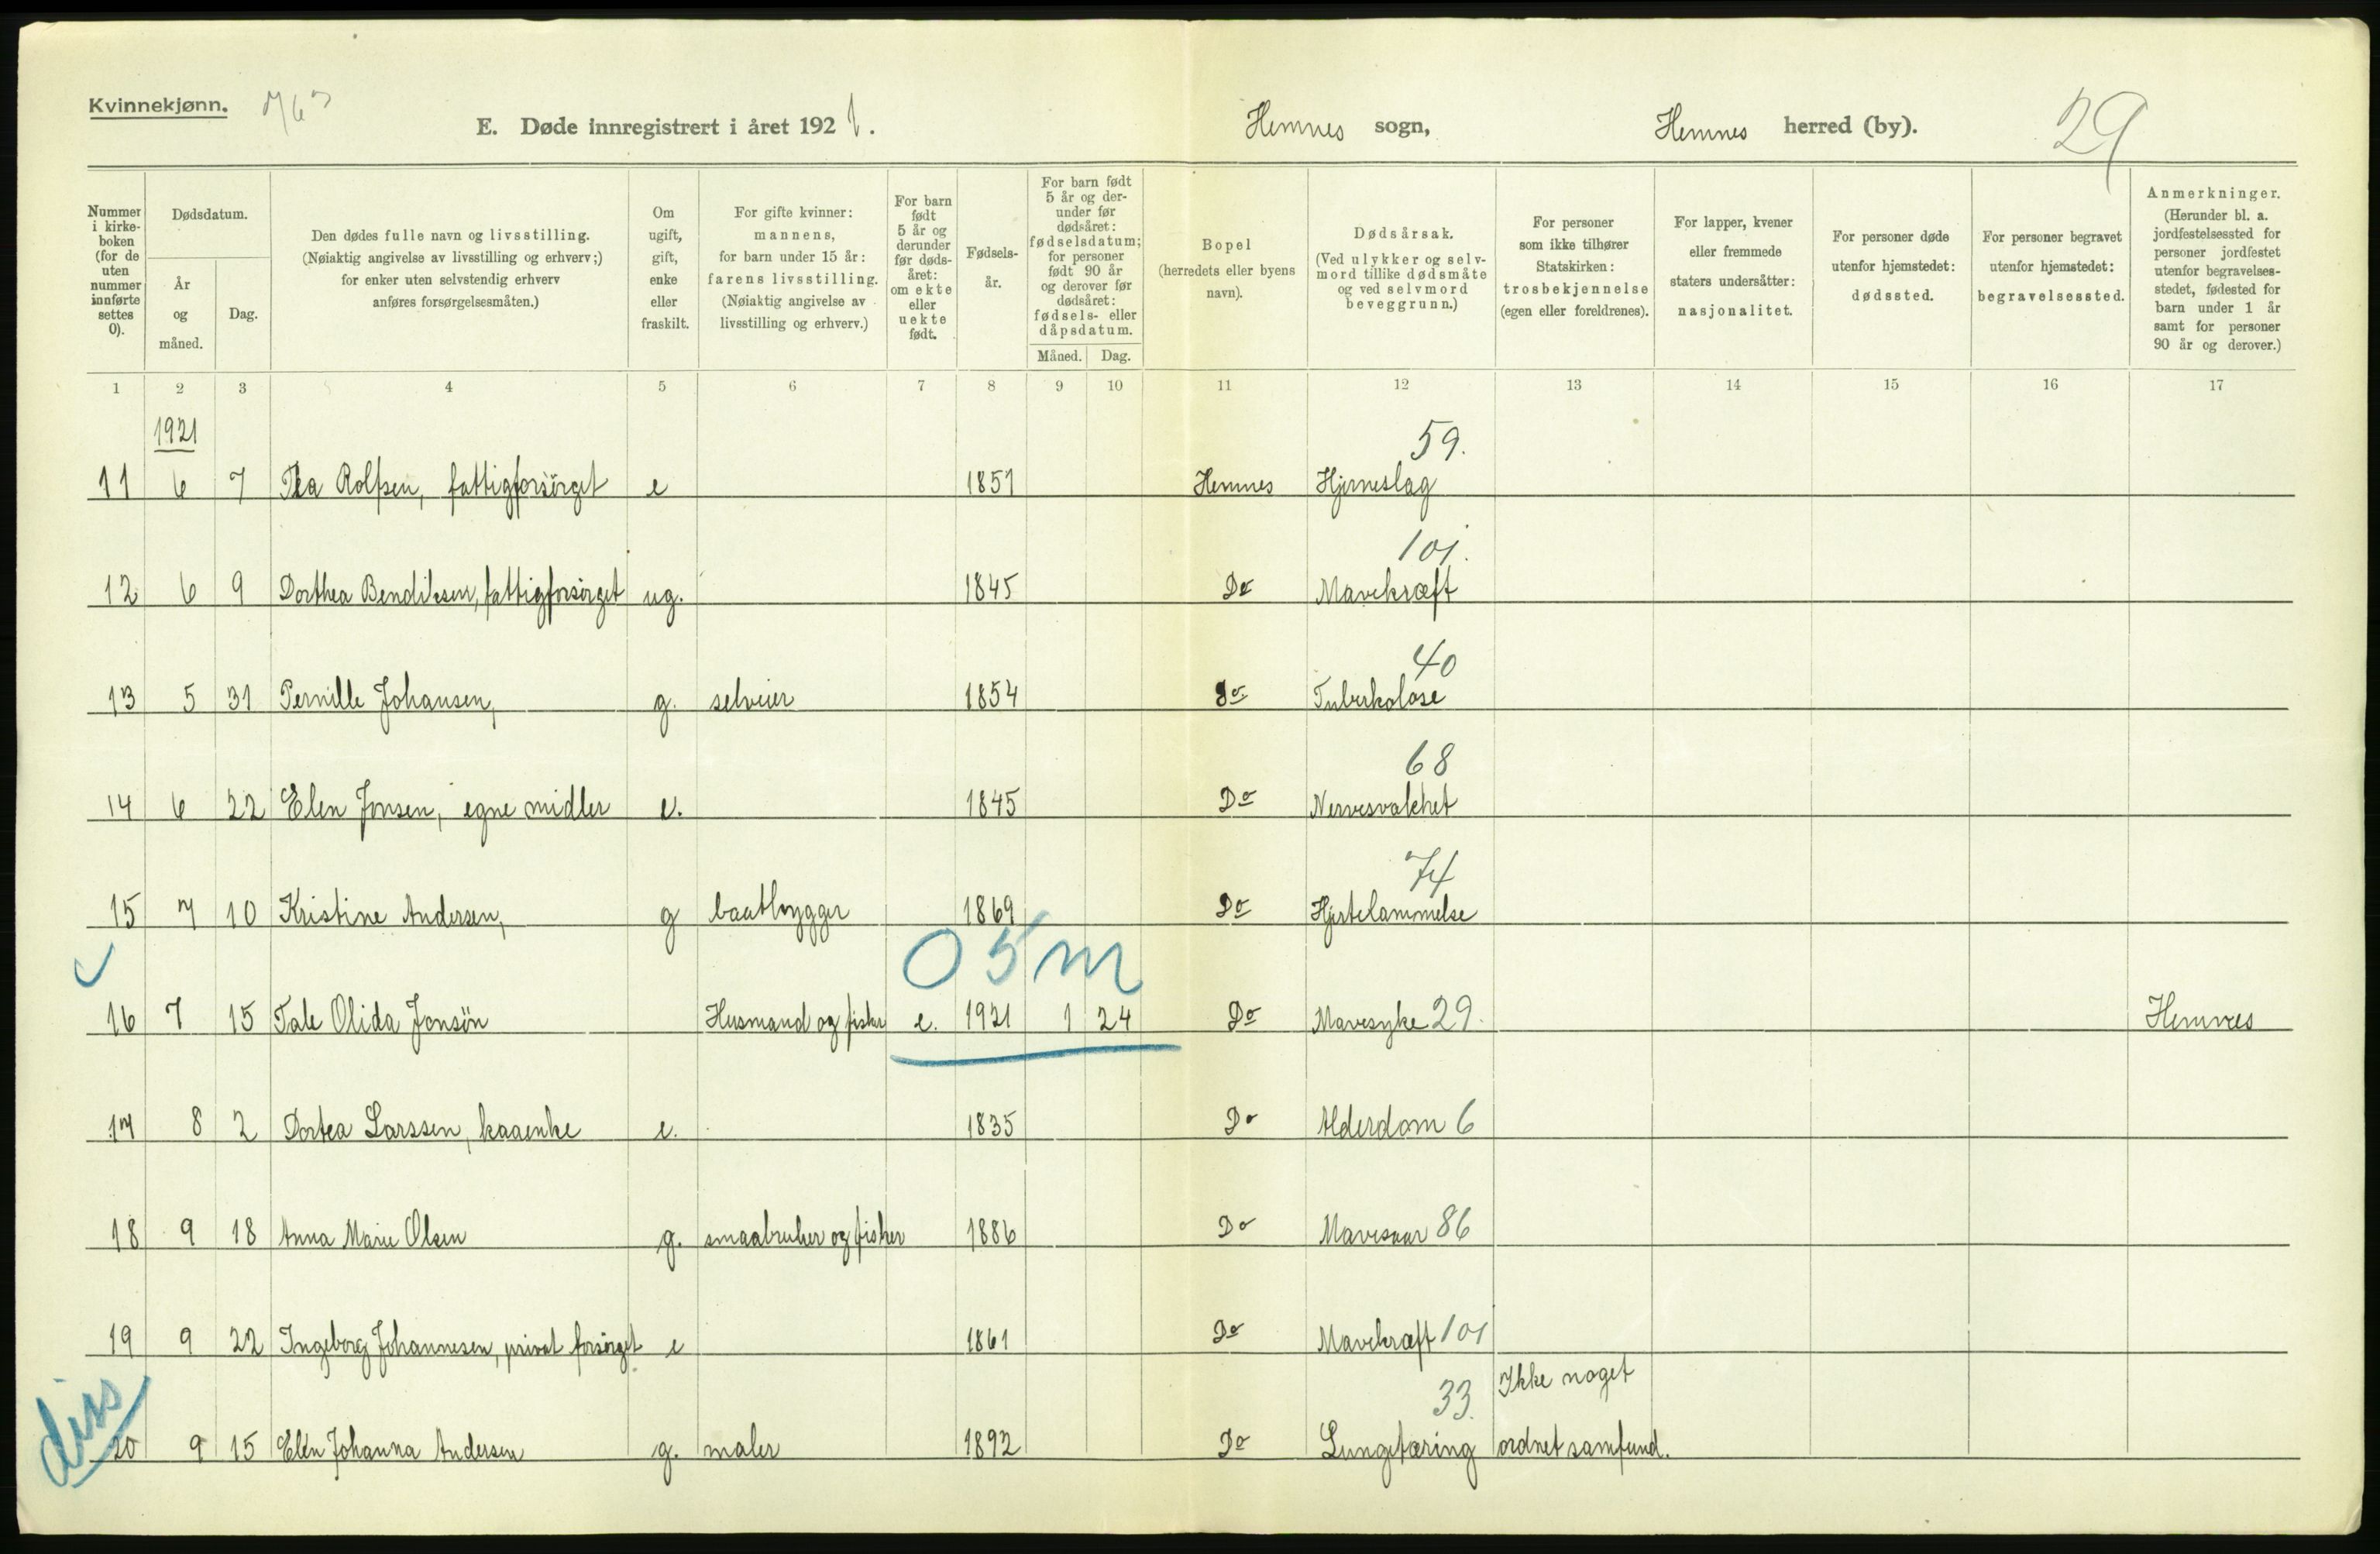 Kvinnekjønn.
E. Døde innregistrert i året 1921.
Hemnes sogn,
Hemnes herred (by).
29
Nummer i kirkeboken (for de uten nummer innførte settes 0).
Dødsdatum.
År og måned.
Dag.
Den dødes fulle navn og livsstilling.
(Nøiaktig angivelse av livsstilling og erhverv;)
for enker uten selvstendig erhverv
anføres forsørgelsesmåten.)
Om ugift, gift, enke eller fraskilt.
For gifte kvinner:
mannens,
for barn under 15 år:
farens livsstilling.
(Nøiaktig angivelse av
livsstilling og erhverv.)
For barn født 5 år og derunder før dødsåret: om ekte eller uekte født.
Fødselsår.
For barn født 5 år og derunder før dødsåret: fødselsdatum; for personer født 90 år og derover før dødsåret: fødsels- eller dåpsdatum.
Måned. Dag.
Bopel
(herredets eller byens
navn).
Dødsårsak.
(Ved ulykker og selvmord tillike dødsmåte og ved selvmord beveggrunn.)
For personer
som ikke tilhører
Statskirken:
trosbekjennelse
(egen eller foreldrenes).
For lapper, kvener
eller fremmede
staters undersåtter:
nasjonalitet.
For personer døde
utenfor hjemstedet:
dødssted.
For personer begravet
utenfor hjemstedet:
begravelsessted.
Anmerkninger.
(Herunder bl. a. jordfestelsessted for personer jordfestet utenfor begravelsesstedet, fødested for barn under 1 år samt for personer 90 år og derover.)
1 2 3 4 5 6 7 8 9 10 11 12 13 14 15 16 17
1921
59.
11 6 7 Thea Rolfsen, fattigforsörget e 1851 Hemnes Hjerneslag
101.
12 6 9 Dorthea Bendiksen, fattigforsörget ug. 1845 Do Mavekræft
40
13 5 31 Pernille Johansen, g. selveier 1854 Do Tuberkolose
68
14 6 22 Elen Jonsen, egne midler e. 1845 Do Nervesvakhet
74
15 7 10 Kristine Andersen, g baatbygger 1869 Do Hjertelammelse
0 5 m
16 7 15 Tale Olida Jonsön Husmand og fisker e. 1921 1 24 Do Mavesyke 29. Hemnes
17 8 2 Dortea Larssen, kaaenke e. 1835 Do Alderdom 6
18 9 18 Anna Marie Olsen g. smaabruker og fisker 1886 Do Mavesaar 86
19 9 22 Ingeborg Johannesen, privat forsörget e 1861 Do Mavekræft 101
33. Ikke noget
diss
20 9 15 Elen Johanna Andersen g. maler 1892 Do Lungetæring ordnet samfund.